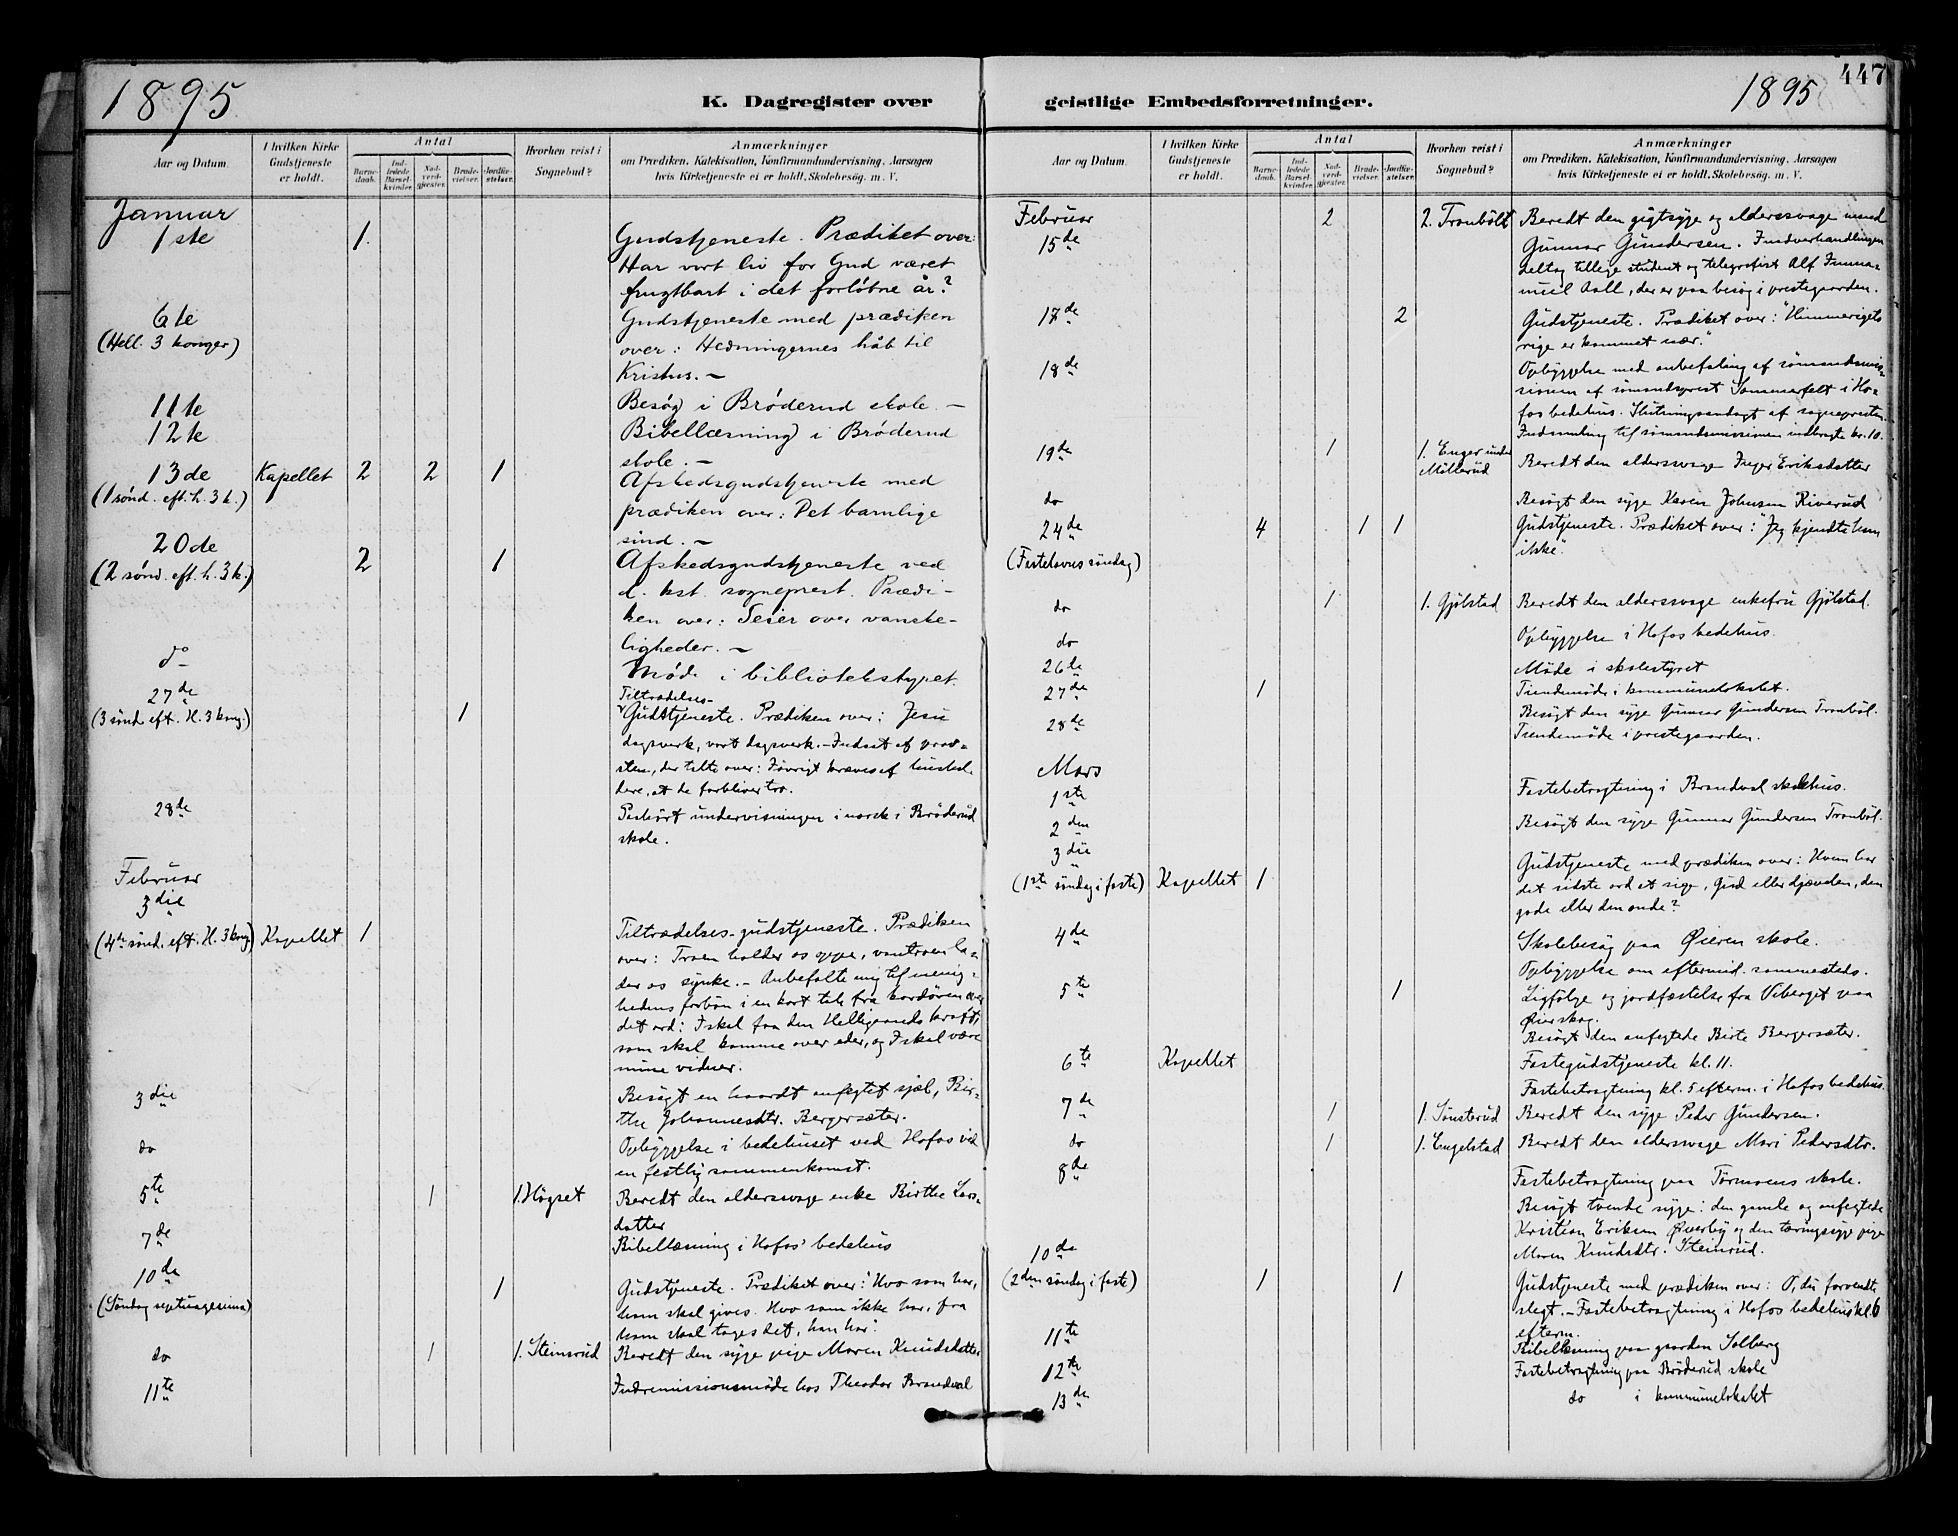 1895
K. Dagregister over
Aar og Datum.
I hvilken Kirke Gudstjeneste er holdt.
Antal
Barnedaab.
Indledede Barselkvinder.
Nadverdgjester.
Brudevielser.
Jordfæstelser.
Hvorhen reist i Sognebud?
Anmærkninger
om Prædiken, Katekisation, Konfirmandundervisning, Aarsagen
hvis Kirketjeneste ei er holdt, Skolebesøg. m. V.
Januar
1ste 1. Gudstjeneste. Prædiket over:
Har vort liv for Gud været
frugtbart i det forløbne år?
6te Gudstjeneste med prædiken
(Hell. 3 konger) over: Hedningernes håb til
Kristus. –
11te Besøg i Brøderud skole. –
12te Bibellæsning i Brøderud
skole. –
13de Kapellet 2 2 1 Afskedsgudstjeneste med
(1 sønd. eft. h. 3 k.) prædiken over: Det barnlige
sind. –
20de 2 1 Afskedsgudstjeneste ved
(2 sønd. eft. h. 3 k.) d. kst. sogneprest. Prædi-
ken over: Seier over vanske-
ligheder. –
do Møde i bibliotekstyret.
27de Tiltrædelses-
(3 sønd. eft. H. 3 kong.) 1 Gudstjeneste. Prædiken over: Jesu
dagsverk, vort dagsverk. – Indsat af prov-
sten, der talte over: Iøvrigt kræves af hushol-
dere, at de forbliver tro.
28de Påhørt undervisningen i norsk i Brøderud
skole.
Februar
3die
(4de sønd. eft. H. 3 kong.) Kapellet 1 Tiltrædelses-gudstjeneste. Prædiken
over: Troen holder os oppe, vantroen la-
der os synke. – Anbefalte mig til menig-
hedens forbøn i en kort tale fra kordøren over
det ord: I skal faa den Helligaands kraft,
som skal komme over eder, og I skal være
mine vidner.
3die Besøgt en haardt anfegtet sjæl, Bir-
the Johannesdtr. Bergersæter.
do Opbyggelse i bedehuset ved Hofos ved
en festlig sammenkomst.
5te 1 1. Høgset Beredt den alderssvage enke Birthe Lars-
datter
7de Bibellæsning i Hofos' bedehus
10de
(Søndag septuagesima) 1 Gudstjeneste. Prædiket over: "Hvo som har,
ham skal gives. Hvo som ikke har, fra
ham skal tages det, han har".
do 1 1. Steinsrud Beredt den syge pige Maren Knudsdatter
11te Indremissionsmøde hos Theodor Brandval
447
1895
geistlige Embedsforretninger.
Aar og Datum.
I hvilken Kirke Gudstjeneste er holdt.
Antal
Barnedaab.
Indledede Barselkvinder.
Nadverdgjester.
Brudevielser.
Jordfæstelser.
Hvorhen reist i Sognebud?
Anmærkninger
om Prædiken, Katekisation, Konfirmandundervisning, Aarsagen
hvis Kirketjeneste ei er holdt, Skolebesøg. m. V.
Februar 2 2. Tronbøl Beredt den gigtsyge og alderssvage mand
15de Gunnar Gundersen. I nadverhandlingen
deltog tillige student og telegrafist Alf Imma-
nuel Aall, der er paa besøg i prestegaarden.
17de 2 Gudstjeneste. Prædiket over: "Himmeriges
rige er kommet nær."
18de Opbyggelse med anbefaling af sømandsmis-
sionen af sømandsprest Sommerfelt i Ho-
fos bedehus. Slutningsandagt af sognepresten.
Indsamling til sømandsmissionen indbragte kr. 10.
19de 1 1. Enger under
Møllerud Beredt den alderssvage Inger Eriksdatter
do Besøgt den syge Karen Johnsen Riverud
24de 4 1 1 Gudstjeneste. Prædiket over: "Jeg kjendte ham
(Fastelavns søndag) ikke".
do 1 1. Gjølstad Beredt den alderssvage enkefru Gjølstad.
do Opbyggelse i Hofos bedehus.
26de Møde i skolestyret
27de 1 Tiendemøde i kommunelokalet.
Besøgt den syge Gunnar Gundersen Tronbøl.
28de Tiendemøde i prestegaarden.
Mars
1ste Fastebetragtning i Brandval skolehus.
2den Besøgt den syge Gunnar Gundersen Tronbøl.
3die
(1ste søndag i faste) Kapellet 1 Gudstjeneste med prædiken over: Hvem har
det sidste ord at sige, Gud eller djævelen, den
gode eller den onde?
4de Skolebesøg paa Øieren skole.
Opbyggelse om eftermid. sammesteds.
5te 1 Ligfølge og jordfæstelse fra Viberget paa
Øierskog.
Besøgt den anfegtede Birte Bergersæter.
6te Kapellet Fastegudstjeneste kl. 11.
Fastebetragtning kl. 5 efterm. i Hofos bedehus.
7de 1 1. Sønsterud Beredt den syge Peder Gundersen.
do 1 1. Engelstad Beredt den alderssvage Mari Pedersdtr.
8de Fastebetragtning paa Tørmoens skole.
Besøgt tvende syge: den gamle og anfegtede
Kristian Eriksen Øverby og den tæringssyge pige
Maren Knudsdtr. Steinsrud.
10de
(2den søndag i faste) 1 1 Gudstjeneste med prædiken over: O, du forvendte
slegt. – Fastebetragtning i Hofos bedehus kl. 6
efterm.
11te Bibellæsning paa gaarden Solberg
12te Fastebetragtning paa Brøderud skole
13de do i kommunelokalet